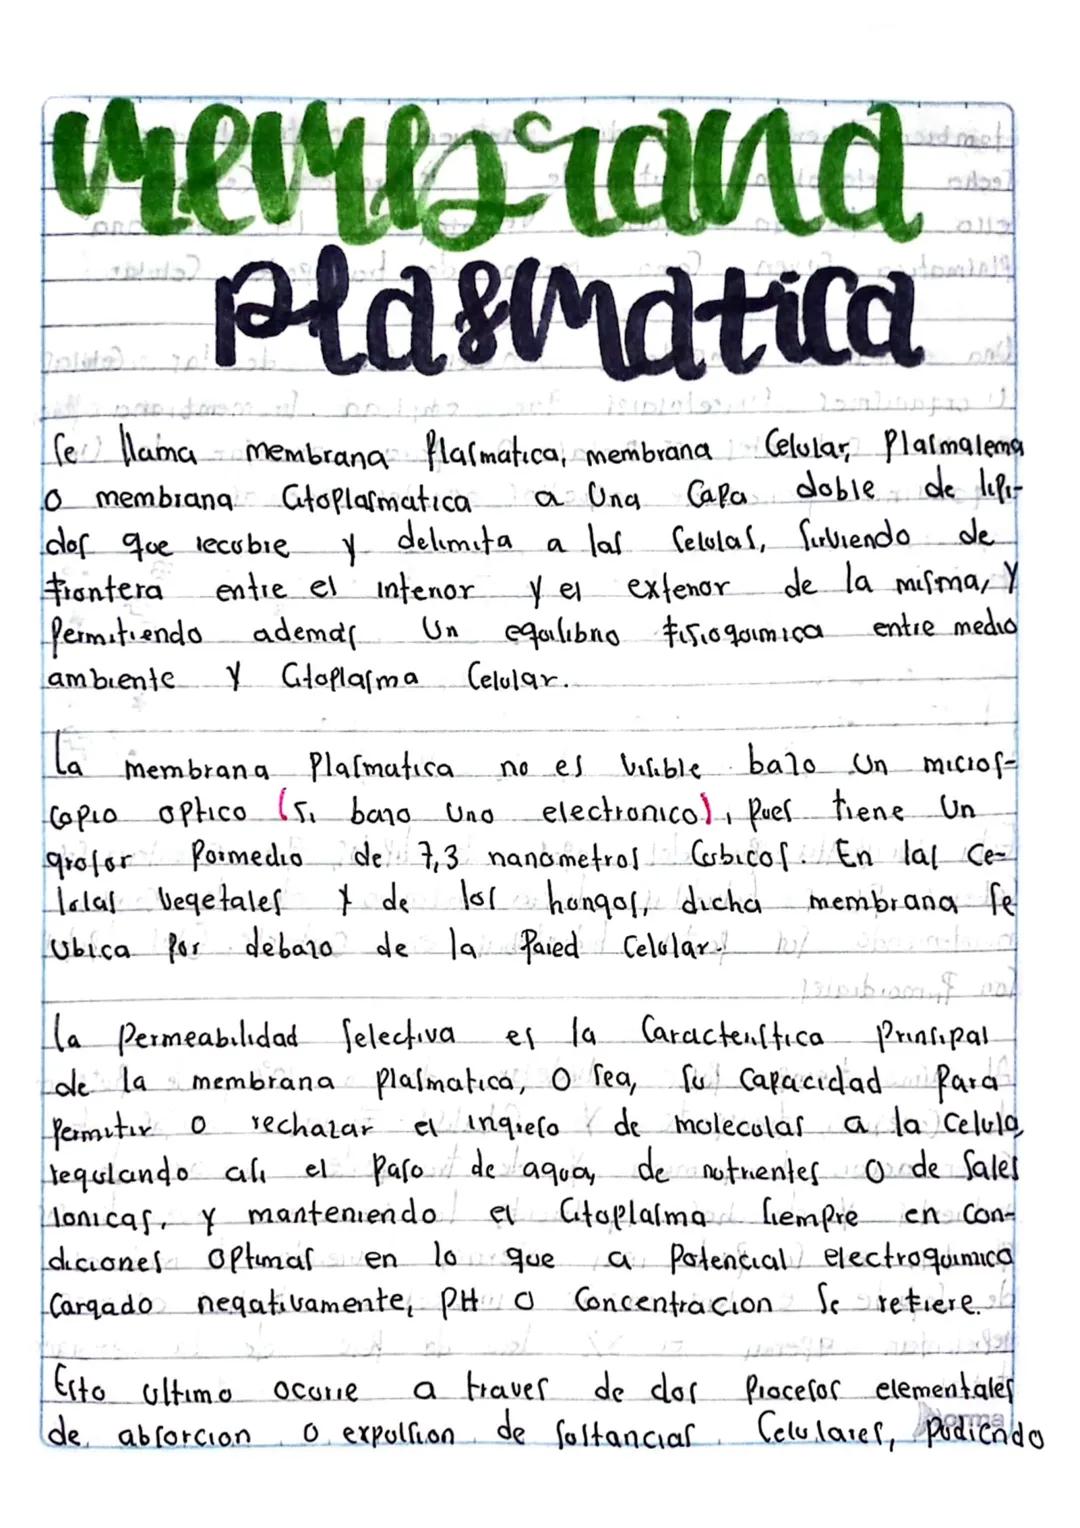 membrana
plasmatica
Se llama membrana Plasmatica, membrana Celular, Plasmalema
o membrana Citoplasmatica a Una Capa doble de lipi-
dos que recubre y delimita a las Celulas, Sirviendo de
frontera entre el interior y el exterior de la misma, y
Permitiendo ademas Un equilibrio fisioquimica entre medio
ambiente y Citoplasma Celular.
La membrana Plasmatica no es Visible bajo Un micros-
copio optico (si bajo Uno electronico), Pues tiene Un
grosor Pormedio de 7,3 nanometros Cubicos. En las Ce-
lulas Vegetales y de los hongos, dicha membrana se
Ubica Por debajo de la Pared Celular.
La Permeabilidad Selectiva es la Caracteristica Prinsipal
de la membrana Plasmatica, O sea, su Capacidad Para
Permitir o rechazar el ingreso de moleculas a la Celula,
regulando asi el Paso de agua, de nutrientes O de Sales
Ionicas, y manteniendo el Citoplasma Siempre en Con-
diciones Optimas en lo que a Potencial electroquimico
Cargado negativamente, PH O Concentracion Se refiere.
Esto Ultimo ocurre a traves de dos Procesos elementales
de absorcion o expulsion de Sustancias Celulares, Pudiendo
Norma